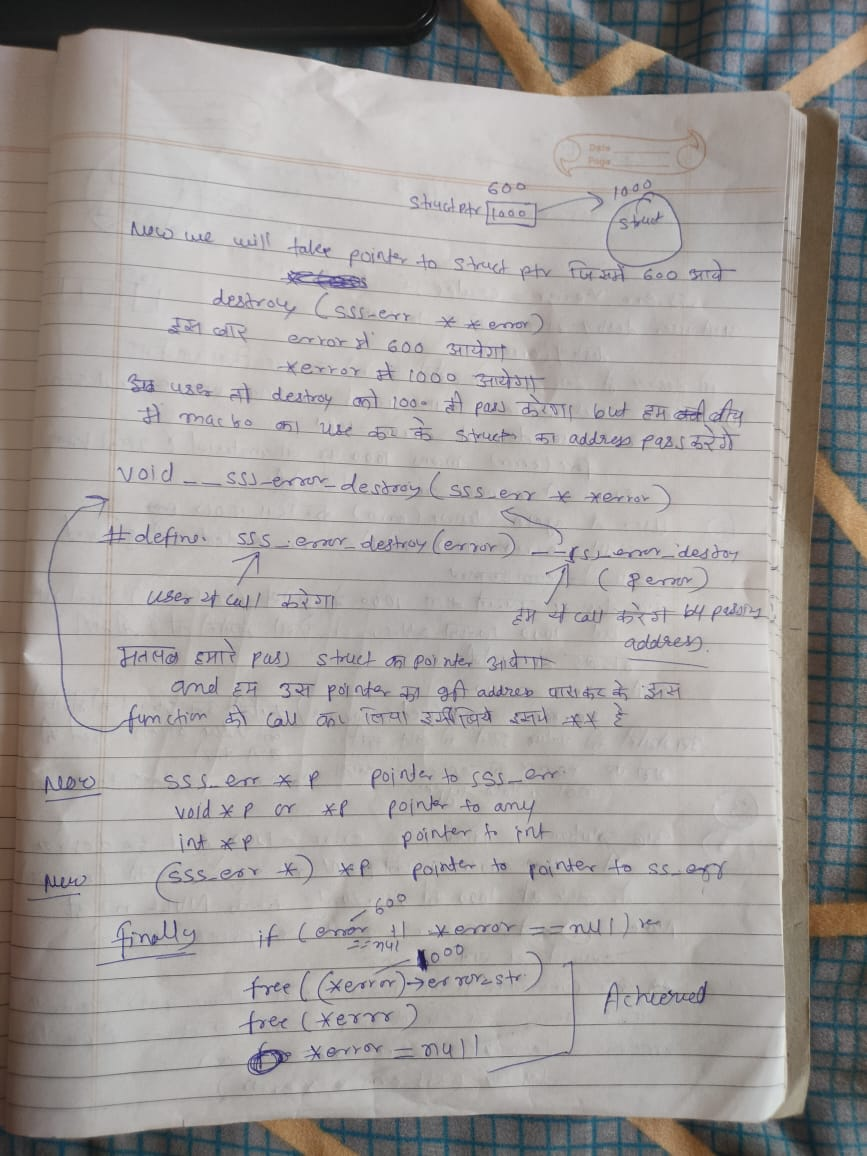 Date
Page
600 1000
Struct ptr 1000 Struct
Now we will take pointer to struct ptr जिसमें 600 आये
destroy (sss-err * *error)
इस बार error में 600 आयेगा
*error में 1000 आयेगा
user तो destroy को 1000 ही pass करेगा but हम बीच
में macro का use कर के struct का address pass करेंगे
void __sss-error-destroy (sss-err * *error)
#define. sss-error-destroy(error) __sss-error-destroy
(&error)
user ये call करेगा
हम ये call करेंगे by passing
address.
मतलब हमारे pass struct का pointer आयेगा
and हम उस pointer का भी address पास कर के इस
function को call कर लिया इसीलिये इसमें ** है
Now sss-err * p pointer to sss-err.
void *p or *p pointer to any
int *p pointer to int
New (sss-err *) *p pointer to pointer to ss-err
600
finally if (error || *error == null)
== null
1000
free((*error)->error-str)
free(*errr) Achieved
*error = null